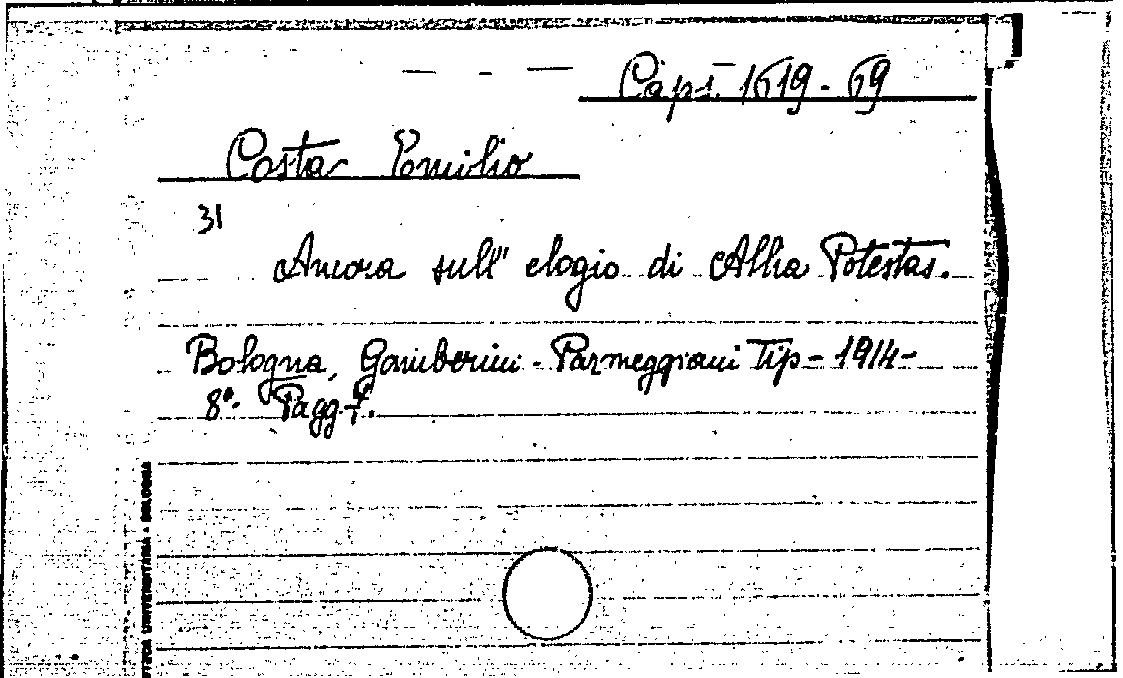 Caps. 1619-69
Costa Emilio
31
Ancora sull' elogio di Allia Potestas.
Bologna, Gamberini-Parmeggiani Tip-1914-
8°. Pagg. 7.
TECA UNIVERSITARIA - BOLOGNA